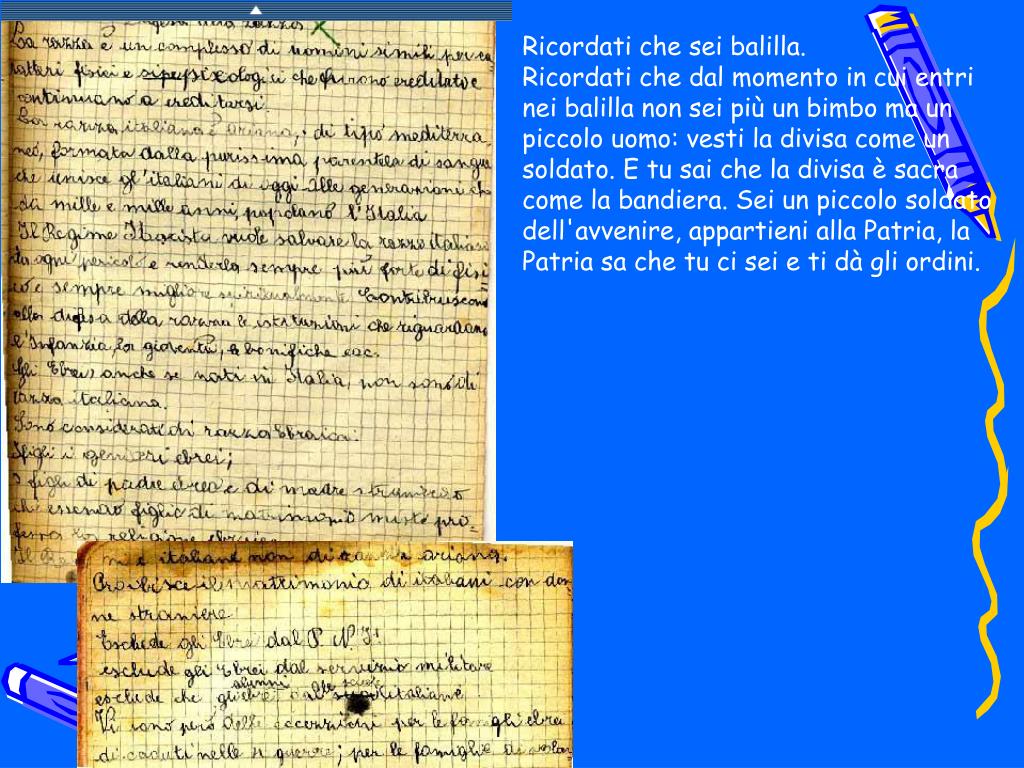 Difesa della razza
La razza è un complesso di uomini simili per ca
ratteri fisici e sipupsixologici che furono ereditati e
continuano a ereditarsi.
La razza italiana è ariana, di tipo mediterra
neo, formata dalla purissima parentela di sangue
che unisce gl'italiani di oggi alle generazioni che
da mille e mille anni popolano l'Italia
Il Regime Fascista vuole salvare la razza italiana
da ogni pericolo e renderla sempre più forte di fisi
co e sempre migliore spiritualmente Contribuiscono
alla difesa della razza le istituzioni che riguardano
l'Infanzia, la gioventù, le bonifiche ecc.
Gli Ebrei, anche se nati in Italia, non sono di
razza italiana.
Sono considerati di razza Ebraica:
I figli i genitori ebrei;
I figli di padre ebreo e di madre straniera
chi essendo figlio di matrimonio misto pro=
fessa la religione ebraica
Il
italiane non di razza ariana.
Proibisce il matrimonio di italiani con don
ne straniere
Esclude gli Ebrei dal P. N. F.
esclude gli Ebrei dal servizio militare
alunni alle scuole
esclude che gli ebrei italiane
Vi sono però delle eccezioni per le famigli ebree
di caduti nelle 4 guerre; per le famiglie di volon
Ricordati che sei balilla.
Ricordati che dal momento in cui entri
nei balilla non sei più un bimbo ma un
piccolo uomo: vesti la divisa come un
soldato. E tu sai che la divisa è sacra
come la bandiera. Sei un piccolo soldato
dell'avvenire, appartieni alla Patria, la
Patria sa che tu ci sei e ti dà gli ordini.